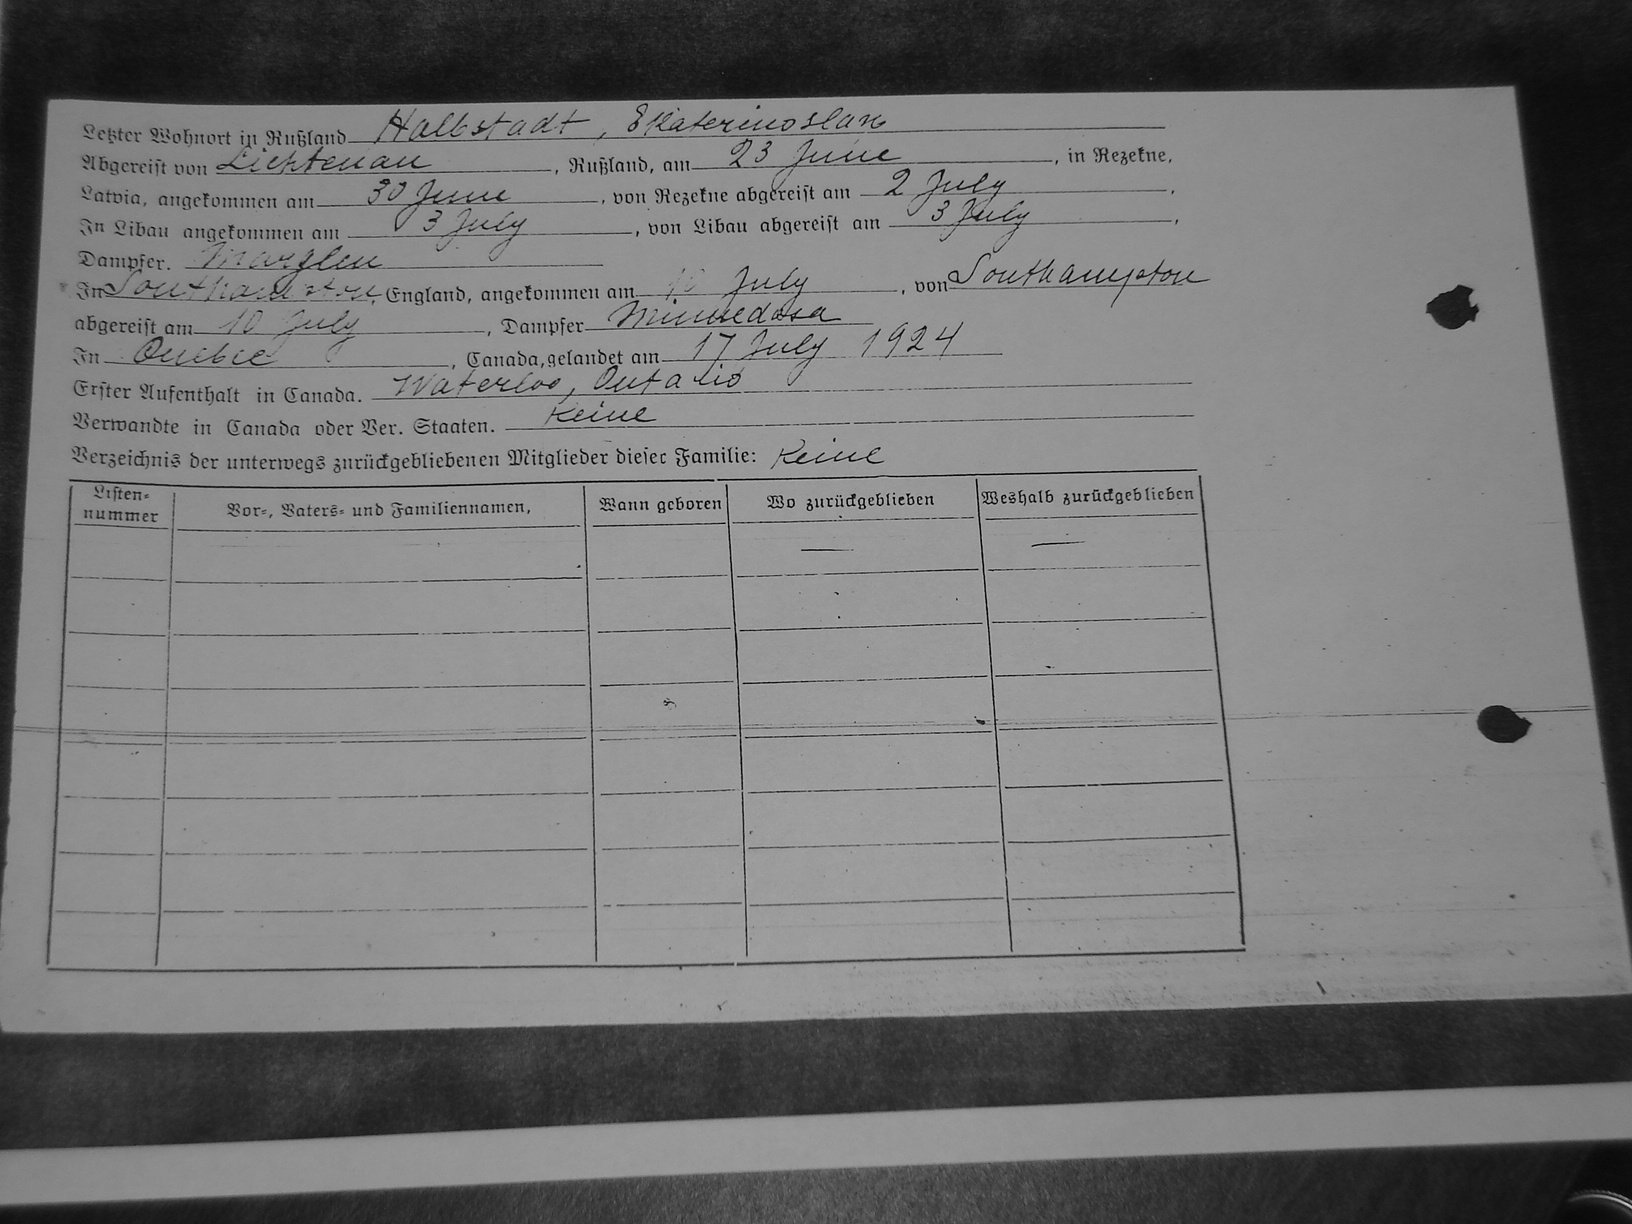 Letzter Wohnort in Rußland Halbstadt, Ekaterinoslaw
Abgereist von Lichtenau, Rußland, am 23 June, in Rezekne,
Latvia, angekommen am 30 June, von Rezekne abgereist am 2 July,
In Libau angekommen am 3 July, von Libau abgereist am 3 July,
Dampfer. Marglen
In Southampton, England, angekommen am 10 July, von Southampton
abgereist am 10 July, Dampfer Minnedosa
In Quebec, Canada, gelandet am 17 July 1924
Erster Aufenthalt in Canada. Waterloo, Ontario
Verwandte in Canada oder Ver. Staaten. Keine
Verzeichnis der unterwegs zurückgebliebenen Mitglieder dieser Familie: Keine
Listen-nummer Vor-, Vaters- und Familiennamen, Wann geboren Wo zurückgeblieben Weshalb zurückgeblieben
— —